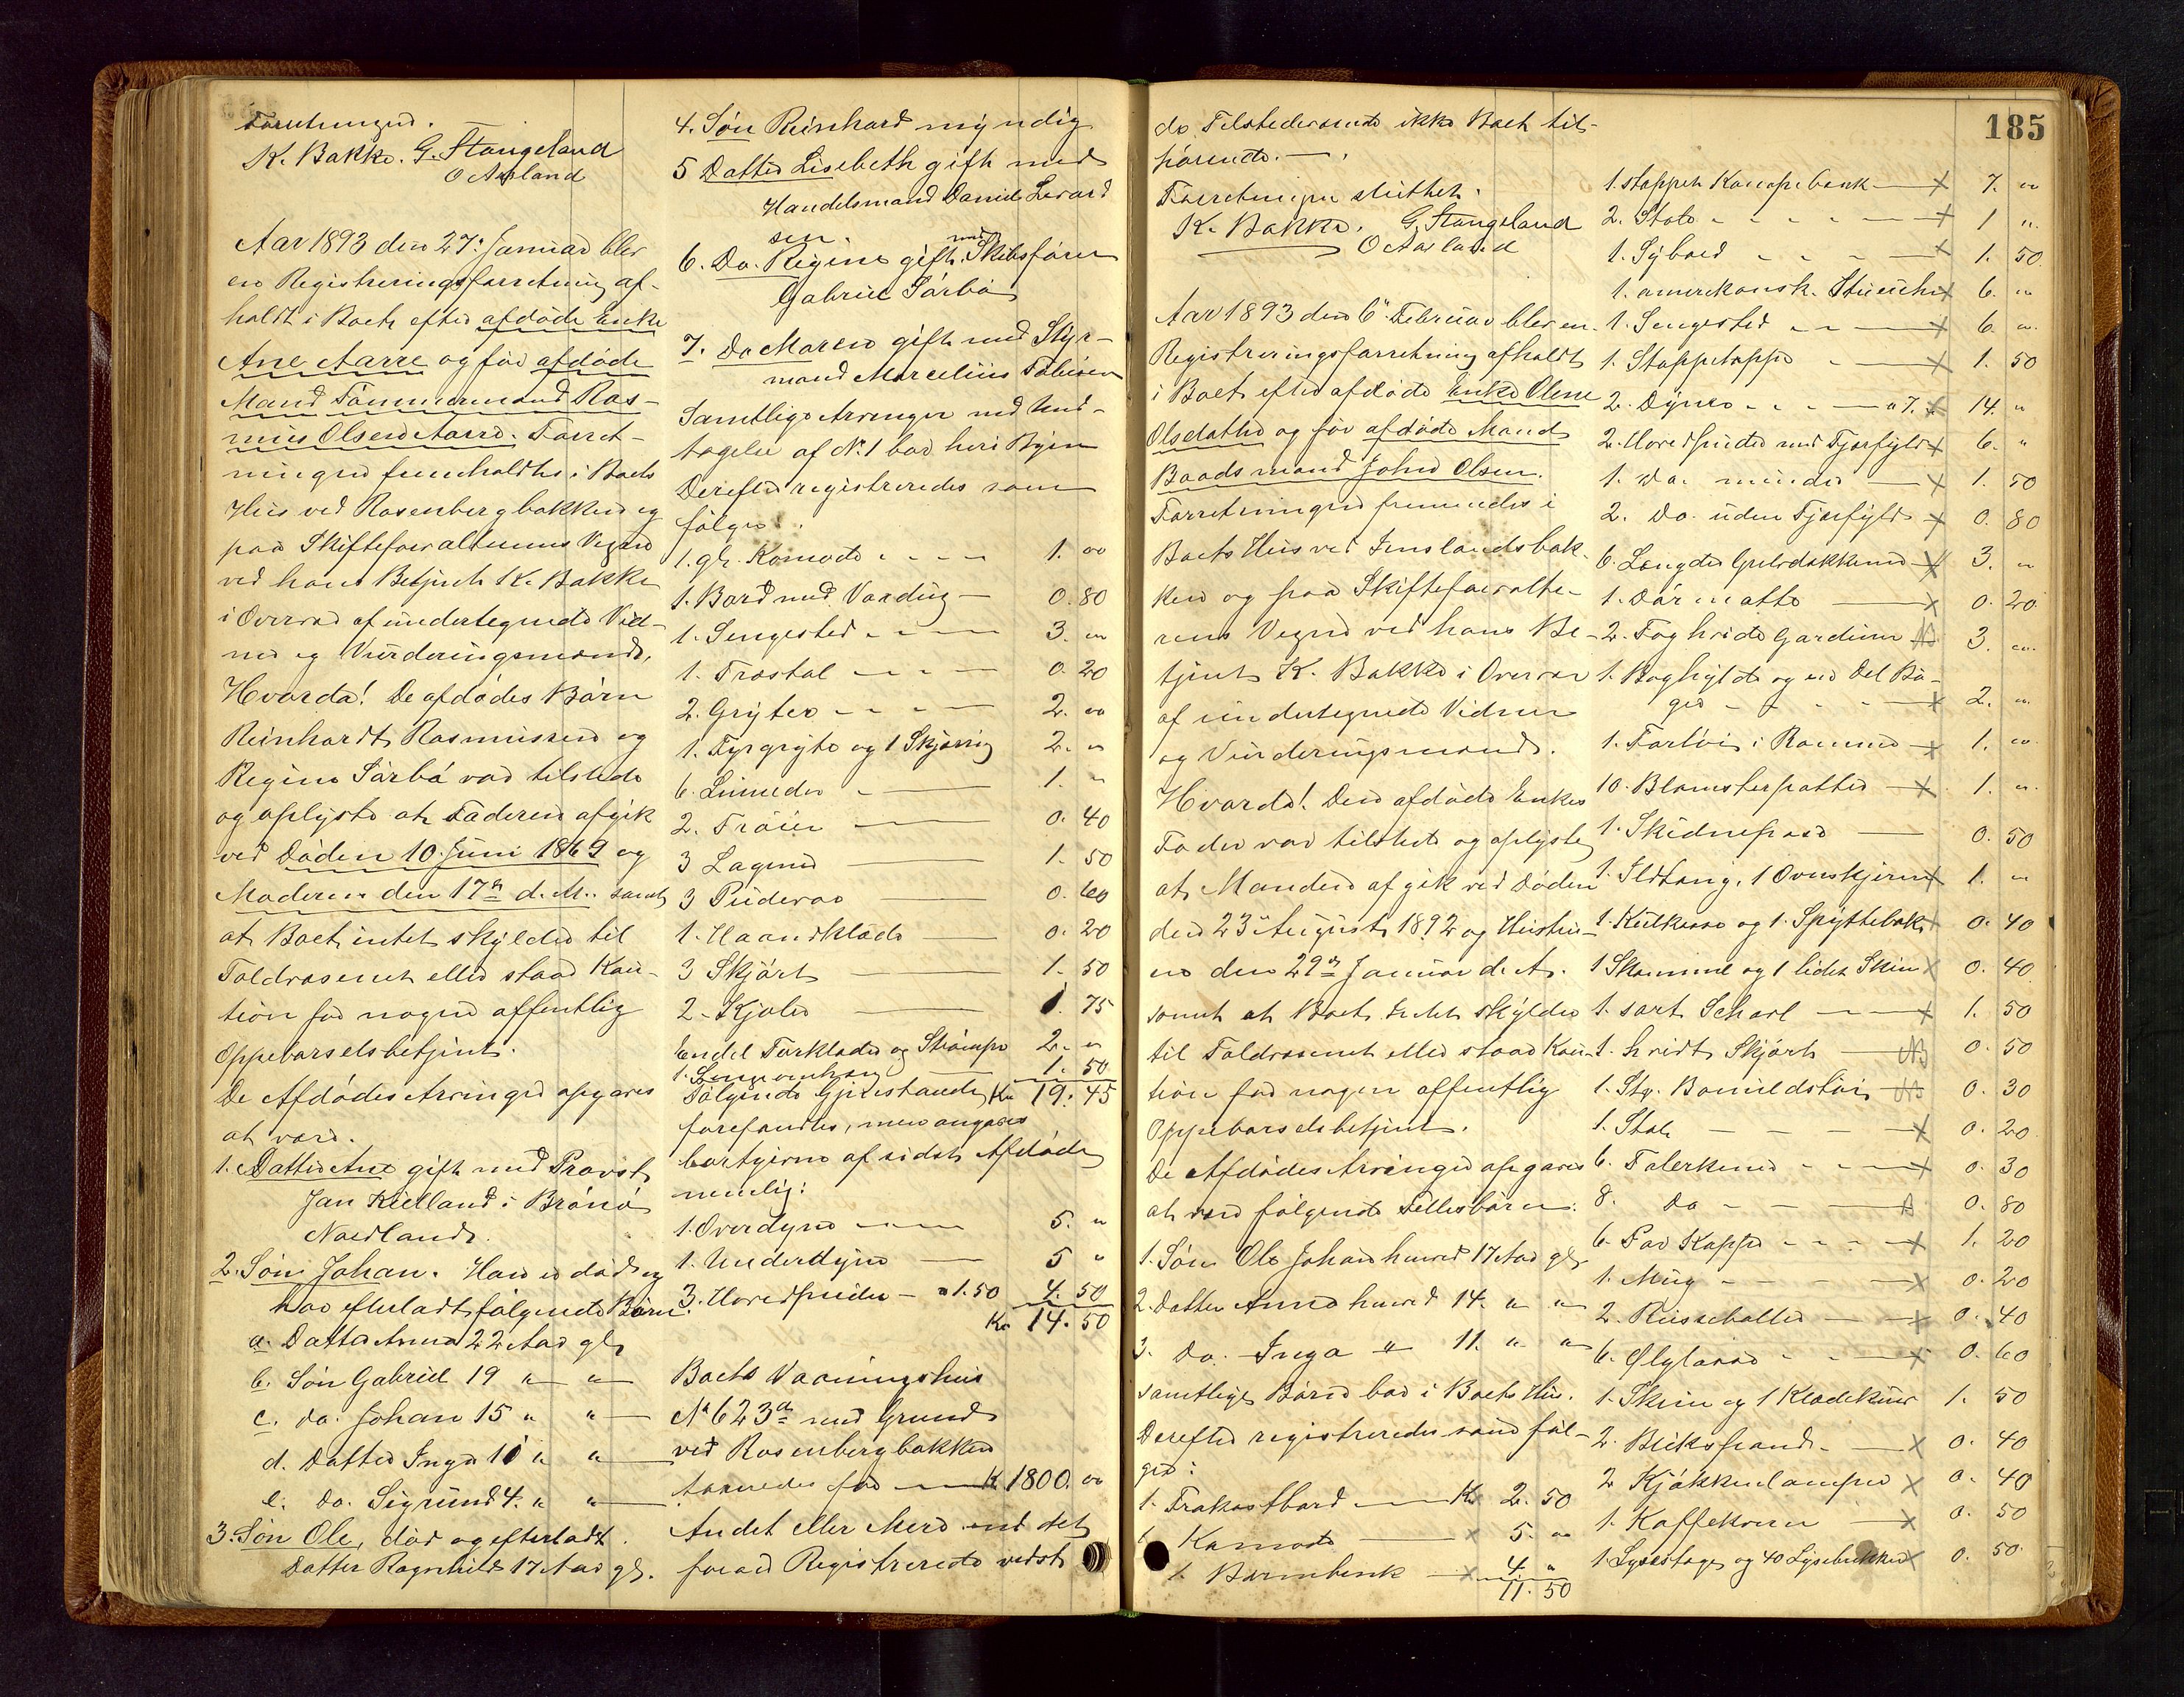 Forretningen.
K. Bakke. G. Stangeland
O Aasland
Aar 1893 den 27. Januar blev
en Registreringsforretning af-
holdt i Boet efter afdøde Enke
Ane Aarre og før afdøde
Mand Tømmermand Ras-
mus Olsen Aarre. Forret-
ningen fremholdtes i Boets
Hus ved Rosenbergbakken og
paa Skifteforvalterens Vegne
ved hans Betjent K. Bakke
i Overvær af undertegnede Vid-
ner og Vurderingsmænd.
Hvorda! De afdødes Børn
Reinhardt Rasmussen og
Regine Sørbø var tilstede
og oplyste at Faderen afgik
ved Døden 10. Juni 1869 og
Moderen den 17de d. M. samt
at Boet intet skylder til
Toldvæsenet eller staar Kau-
tion for nogen offentlig
Oppebørselsbetjent.
De Afdødes Arvinger opgaves
at være.
1. Datter Ane gift med Provst
Jan Kielland i Brønø
Nordland.
2. Søn Johan. Han er død og
har efterladt følgende Børn:
a. Datter Anna 22 Aar gl.
b. Søn Gabriel 19 " "
c. do. Johan 15 " "
d. Datter Inga 10 " "
e. do. Sigrund 4. " "
3. Søn Ole, død og efterladt
Datter Ragnhild 17 Aar gl.
4. Søn Reinhard myndig
5 Datter Lisebeth gift med
Handelsmand DanielÆvard
sen.
6. Do. Regine gift med Skibsfører
Gabriel Sørbø
7. Do Maren gift med Styr-
mand Marcelius Tobiesen
Samtlige Arvinger med Und-
tagelse af No 1 bor heri Byen
Derefter registreredes som
følger:
1. gl. Komode 1. 00
1. Bord med Voxdug 0. 80
1. Sengested 3. "
1. Træstol 0. 20
2. Gryter 2. 00
1. Tyrgryte og 1 Skjærrig 2. "
6. Linneder 1. "
2. Trøier 0. 40
3 Lagener 1. 50
3 Puderoar 0. 60
1. Haandklæde 0. 20
3 Skjørt 1. 50
2. Kjoler 0. 75
Endel Forklæder og Strømper 2. "
1. 50
Følgende Gjenstande Kr 19. 45
forefandtes, men angaves
bortgivne af sidst Afdøde
nemlig:
1. Overdyne 5. "
1. Underdyne 5 "
3. Hovedpuder a 1.50 4. 50
Kr 14. 50
Boets Vaaningshus
No 623a med Grund
ved Rosenbergbakken
taxeredes for Kr 1800. 00
Andet eller Mere end det
foran Registrerede vidste
185
de Tilstedeværende ikke Boet til-
hørende.
Forretningen sluttet.
K. Bakke. G. Stangeland
O Aasland
Aar 1893 den 6. Februar blev en
Registreringsforretning afholdt
i Boet efter afdøde Enke Olene
Olsdatter og før afdøde Mand
Baadsmand John Olsen.
Forretningen fremmedes i
Boets Hus ved Jenslandsbak-
ken og paa Skifteforvalte-
rens Vegne ved hans Be-
tjent K. Bakke i Overvær
af undertegnede Vidner
og Vurderingsmænd.
Hvorda! Den afdøde Enkes
Fader var tilstede og oplyste
at Manden afgik ved Døden
den 23. August 1892 og Hustru-
en den 29de Januar d. A.
samt at Boet intet skylder
til Toldvæsenet eller staar Kau-
tion for nogen offentlig
Oppebørselsbetjent.
De Afdødes Arvinger opgaves
at være følgende Fællesbørn:
1. Søn Ole Johan hened 17 Aar gl.
2. Datter Anna hened 14. " "
3. Do. Inga " 11. " "
samtlige Børn bor i Boets Hus.
Derefter registreredes som føl-
ger:
1. Frokostbord Kr 2. 50
1. Komode x 5. 00
1. Barnbenk x 4. "
11. 50
1. stoppet Kanapebenk x 7. "
2. Stole x 1 "
1. Sybord x 1. 50
1. amerikansk. Stueuhr x 6. "
1. Sengested x 6. "
1. Stoppetæppe x 1. 50
2. Dyner a 7. x 14. "
2. Hovedpuder med Fjærfyld x 6. "
1. Do. mindre x 1. 50
2. Do. uden Fjærfyld x 0. 80
6. Længder Gulvdækkener x 3. "
1. Dørmatte x 0. 20
2. Fag hvide Gardiner 3. "
1. Boghylde og en Del Bø-
ger x 2. "
1. Fartøi i Ramme x 1. "
10. Blomsterpotter x 1. "
1. Skidnespand 0. 50
1. Ildtang, 1 Ovnskjerm x 1. "
1. Kulkasse og 1. Spyttebak x 0. 40
1 Skammel og 1 lidet Skrin x 0. 40
1. sort Schavl x 1. 50
1. hvidt Skjørt 0. 50
1. Stk. Bomuldstøi 0. 30
1. Stol x 0. 20
6. Talerkener x 0. 30
8. Do 0. 80
6. Par Kopper x 1. 20
1. Mug x 0. 20
2. Risseboller x 0. 40
6. Ølglasse x 0. 60
1. Skrin og 1 Klædekurv 1. 50
2. Blikspande x 0. 40
2 Kjøkkenlamper x 0. 40
1. Kaffekværn x 0. 50
1. Lysestage og 40 Lysebrikker x 0. 50